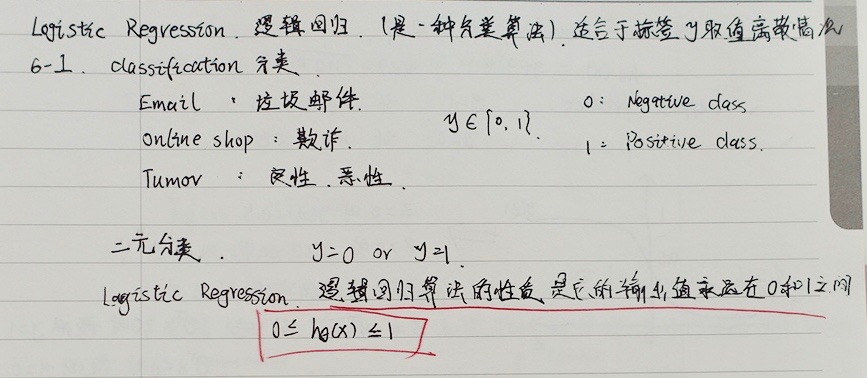 Logistic Regression. 逻辑回归. (是一种分类算法). 适合于标签 y取值离散情况
6-1. classification 分类.
Email : 垃圾邮件.
0: Negative class
y∈{0,1}.
Online shop : 欺诈.
1: Positive class.
Tumor : 良性. 恶性.
二元分类. y=0 or y=1.
Logistic Regression. 逻辑回归算法的性质是它的输出值永远在0和1之间
0≤ hθ(x) ≤1